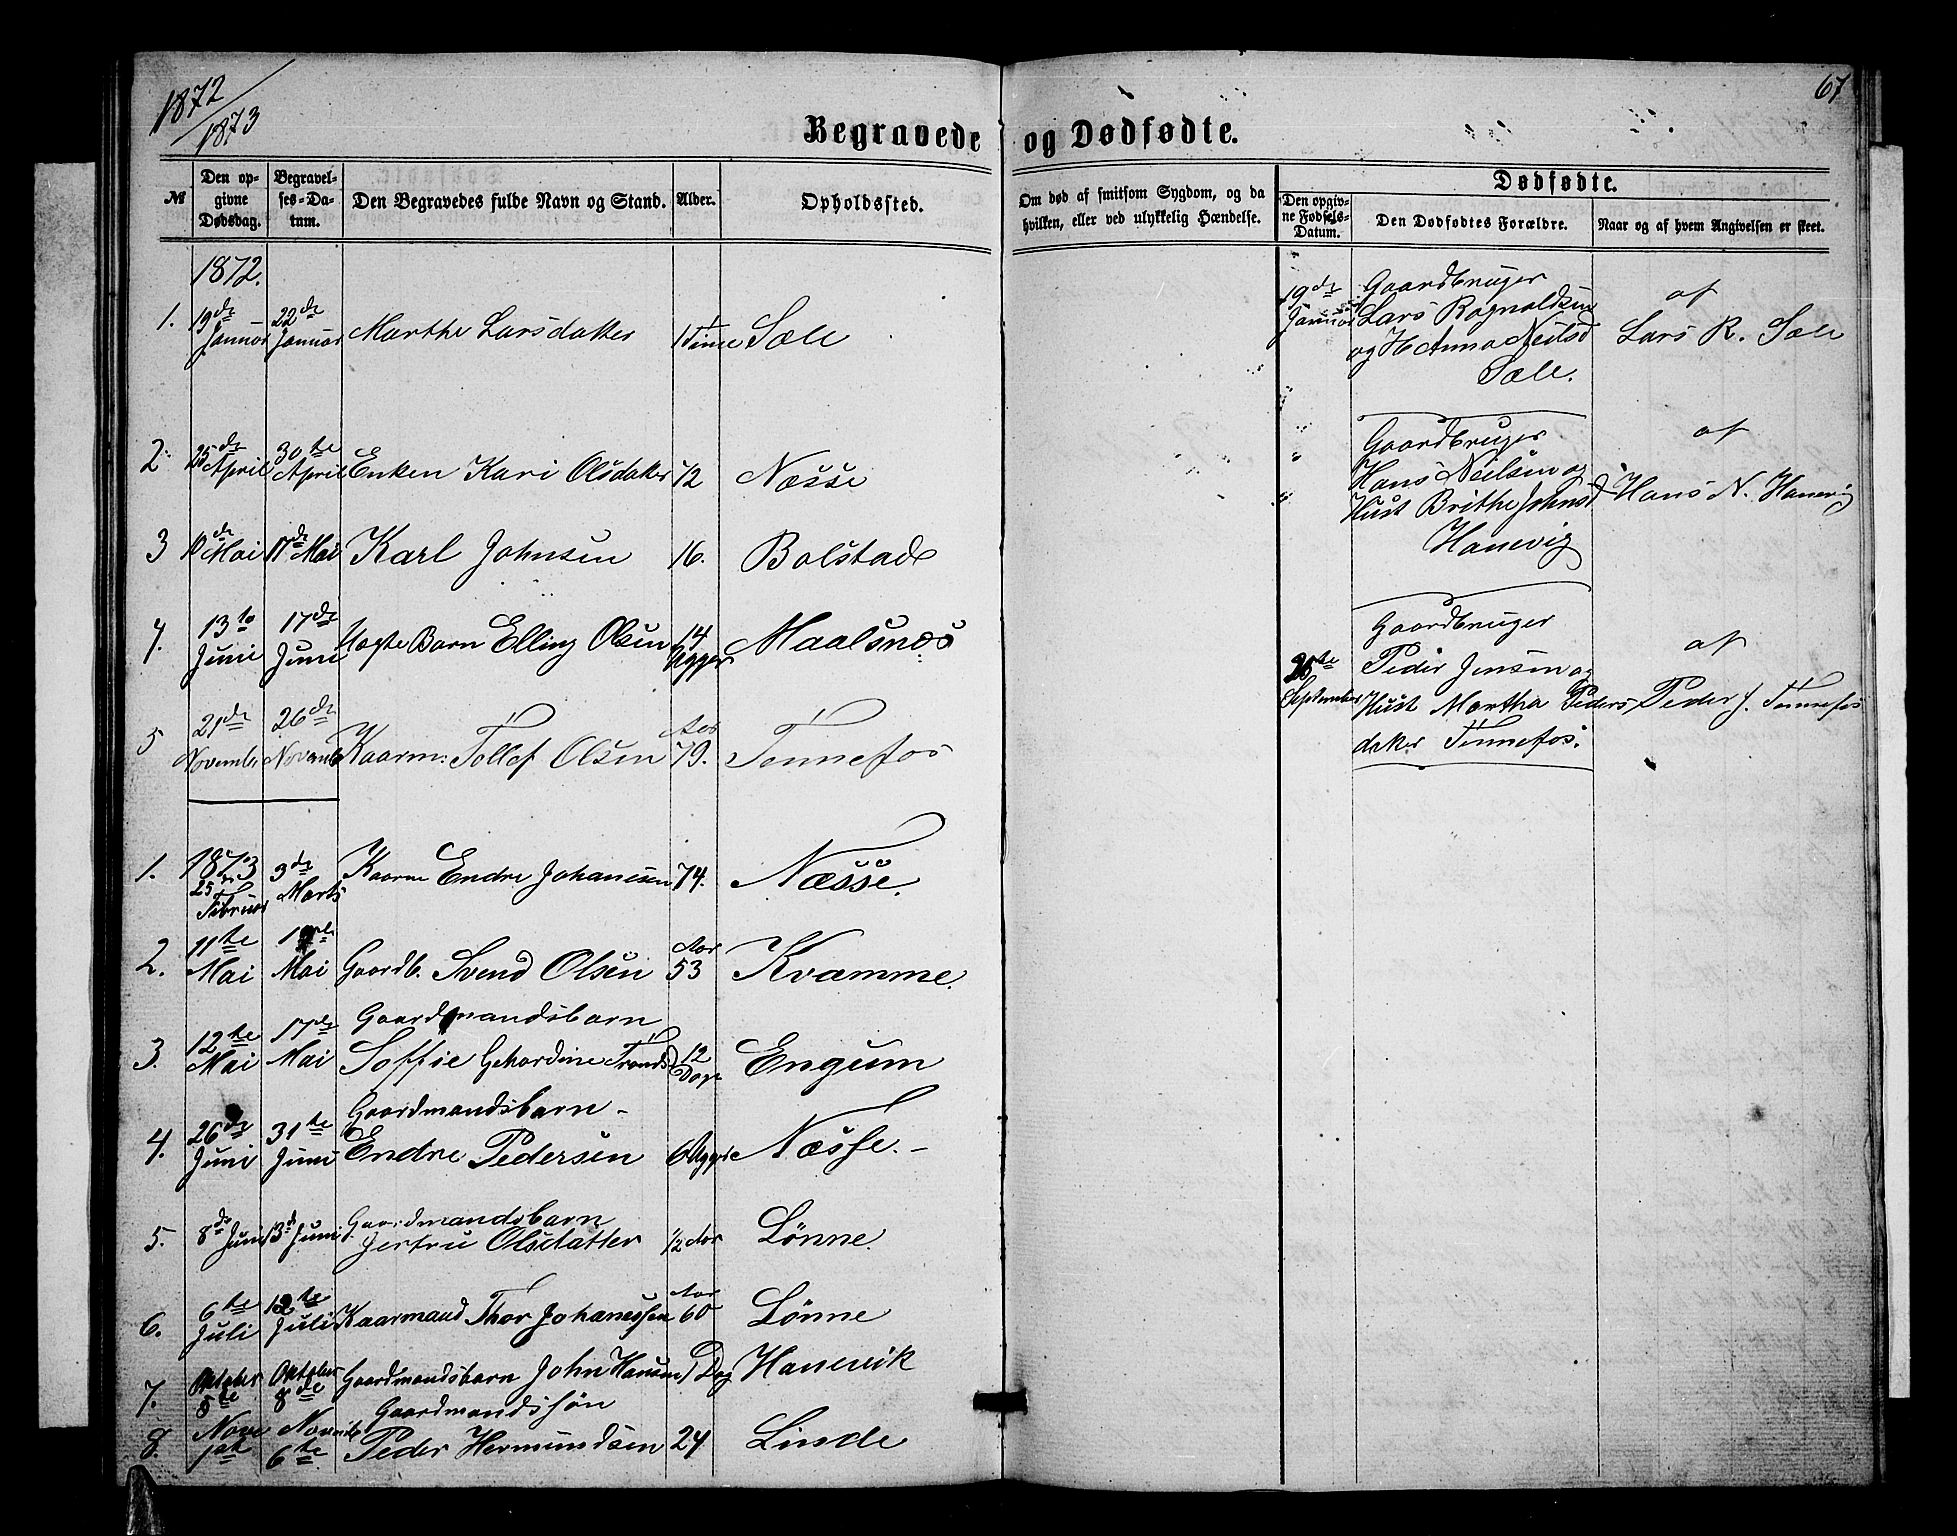 1872
1873
67
Begravede og Dødfødte.
№
Den opgivne Dødsdag.
Begravelses-Datum.
Den Begravedes fulde Navn og Stand.
Alder.
Opholdssted.
Om død af smitsom Sygdom, og da
hvilken, eller ved ulykkelig Hændelse.
Dødfødte.
Den opgivne Fødsels-Datum.
Den Dødfødtes Forældre.
Naar og af hvem Angivelsen er skeet.
1872.
1. 19de Januar 22de Januar Marthe Larsdatter 1 Time Sæle
2 25de April 30te April Enken Kari Olsdatter 72 Næsse
3 10de Mai 17de Mai Karl Johnsen 16. Bolstad
4. 13te Juni 17de Juni Uægte Barn Elling Olsen 14 Uger Maalsnæs
5 21de Novembr 26de Novemb Kaarm: Tollef Olsen Aar 79. Tennefos
1873
1. 25de Februar 3de Marts Kaarm Endre Johanesen 74. Næsse.
2. 11te Mai Mai Gaardb. Svend Olsen Aar 53 Kvamme.
Gaardmandsbarn
3. 12te Mai 17de Mai Soffie Gehardine Tronds 12 Dage Engum
Gaardmandsbarn
4. 26de Juni 31te Juni Endre Pedersen 6 Uger Næsse.
Gaardmandsbarn
5. 8de Juni 13d Juni Jertru Olsdatter 1/2 Aar Lønne.
6. 6te Juli 12te Juli Kaarmand Thor Johanessen Aar 60 Lønne
7. Oktober 5te Oktober 8de Gaardmandsbarn John Hansen 1 Dag Hanevik
Gaardmandssøn
8. Nove 1ste Novemb 6te Peder Hermundsen 24 Linde
19de Januar
Gaardbruger
Lars Ragnaldsen
og H Anna Neilsd
Sæle.
af
Lars R. Sæle
Gaardbruger
Hans Neilsen og
Hust Brithe Johnsd
Hanevig
af
Hans N. Hanevig
September
Gaardbruger
Peder Jensen og
Hust Martha Peders
datter Tennefos.
af
Peder J. Tennefos